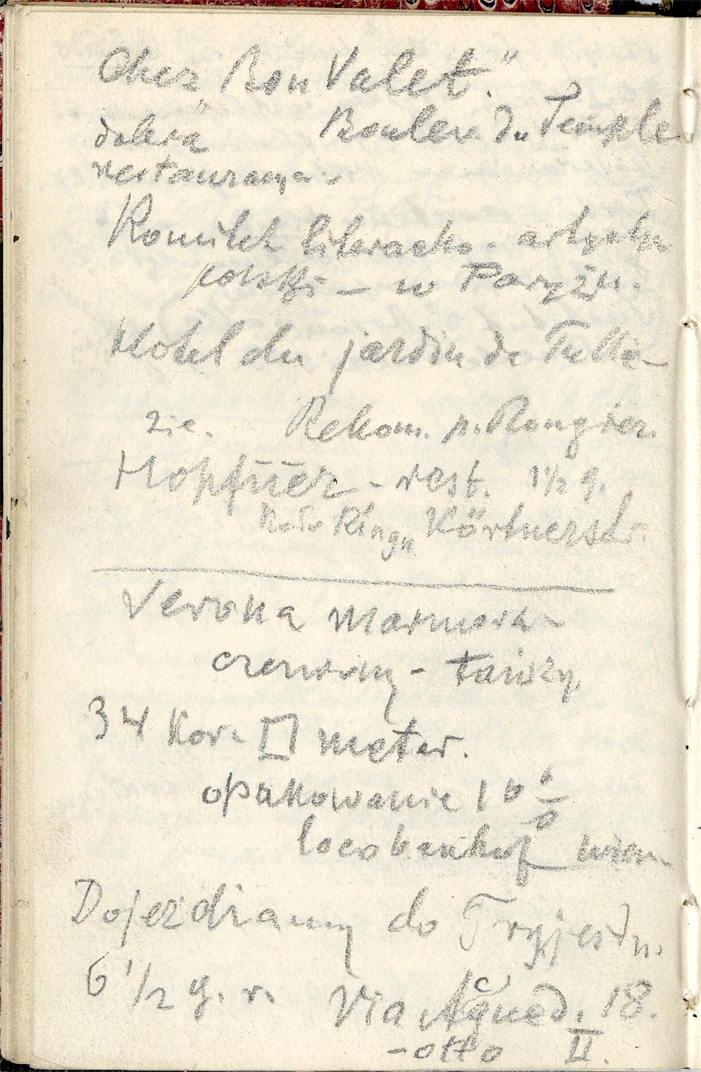 Chez Bon Valet."
dobra Boulev. du Temple
restauracya
Komitet literacko - artystu
polski - w Paryżu.
Hotel du jardin de Tuile-
rie. Rekom. p. Rongier.
Hopfner - rest. 1½ g.
Ring" Kärtnerstr.
Verona marmor-
czerwony - tańszy
34 Kor. □ meter.
opakowanie 10%
loco banhof wien
Dojeżdżamy do Tryjestu.
6 1/2 g. r. Via Aqued. 18.
-otto II.